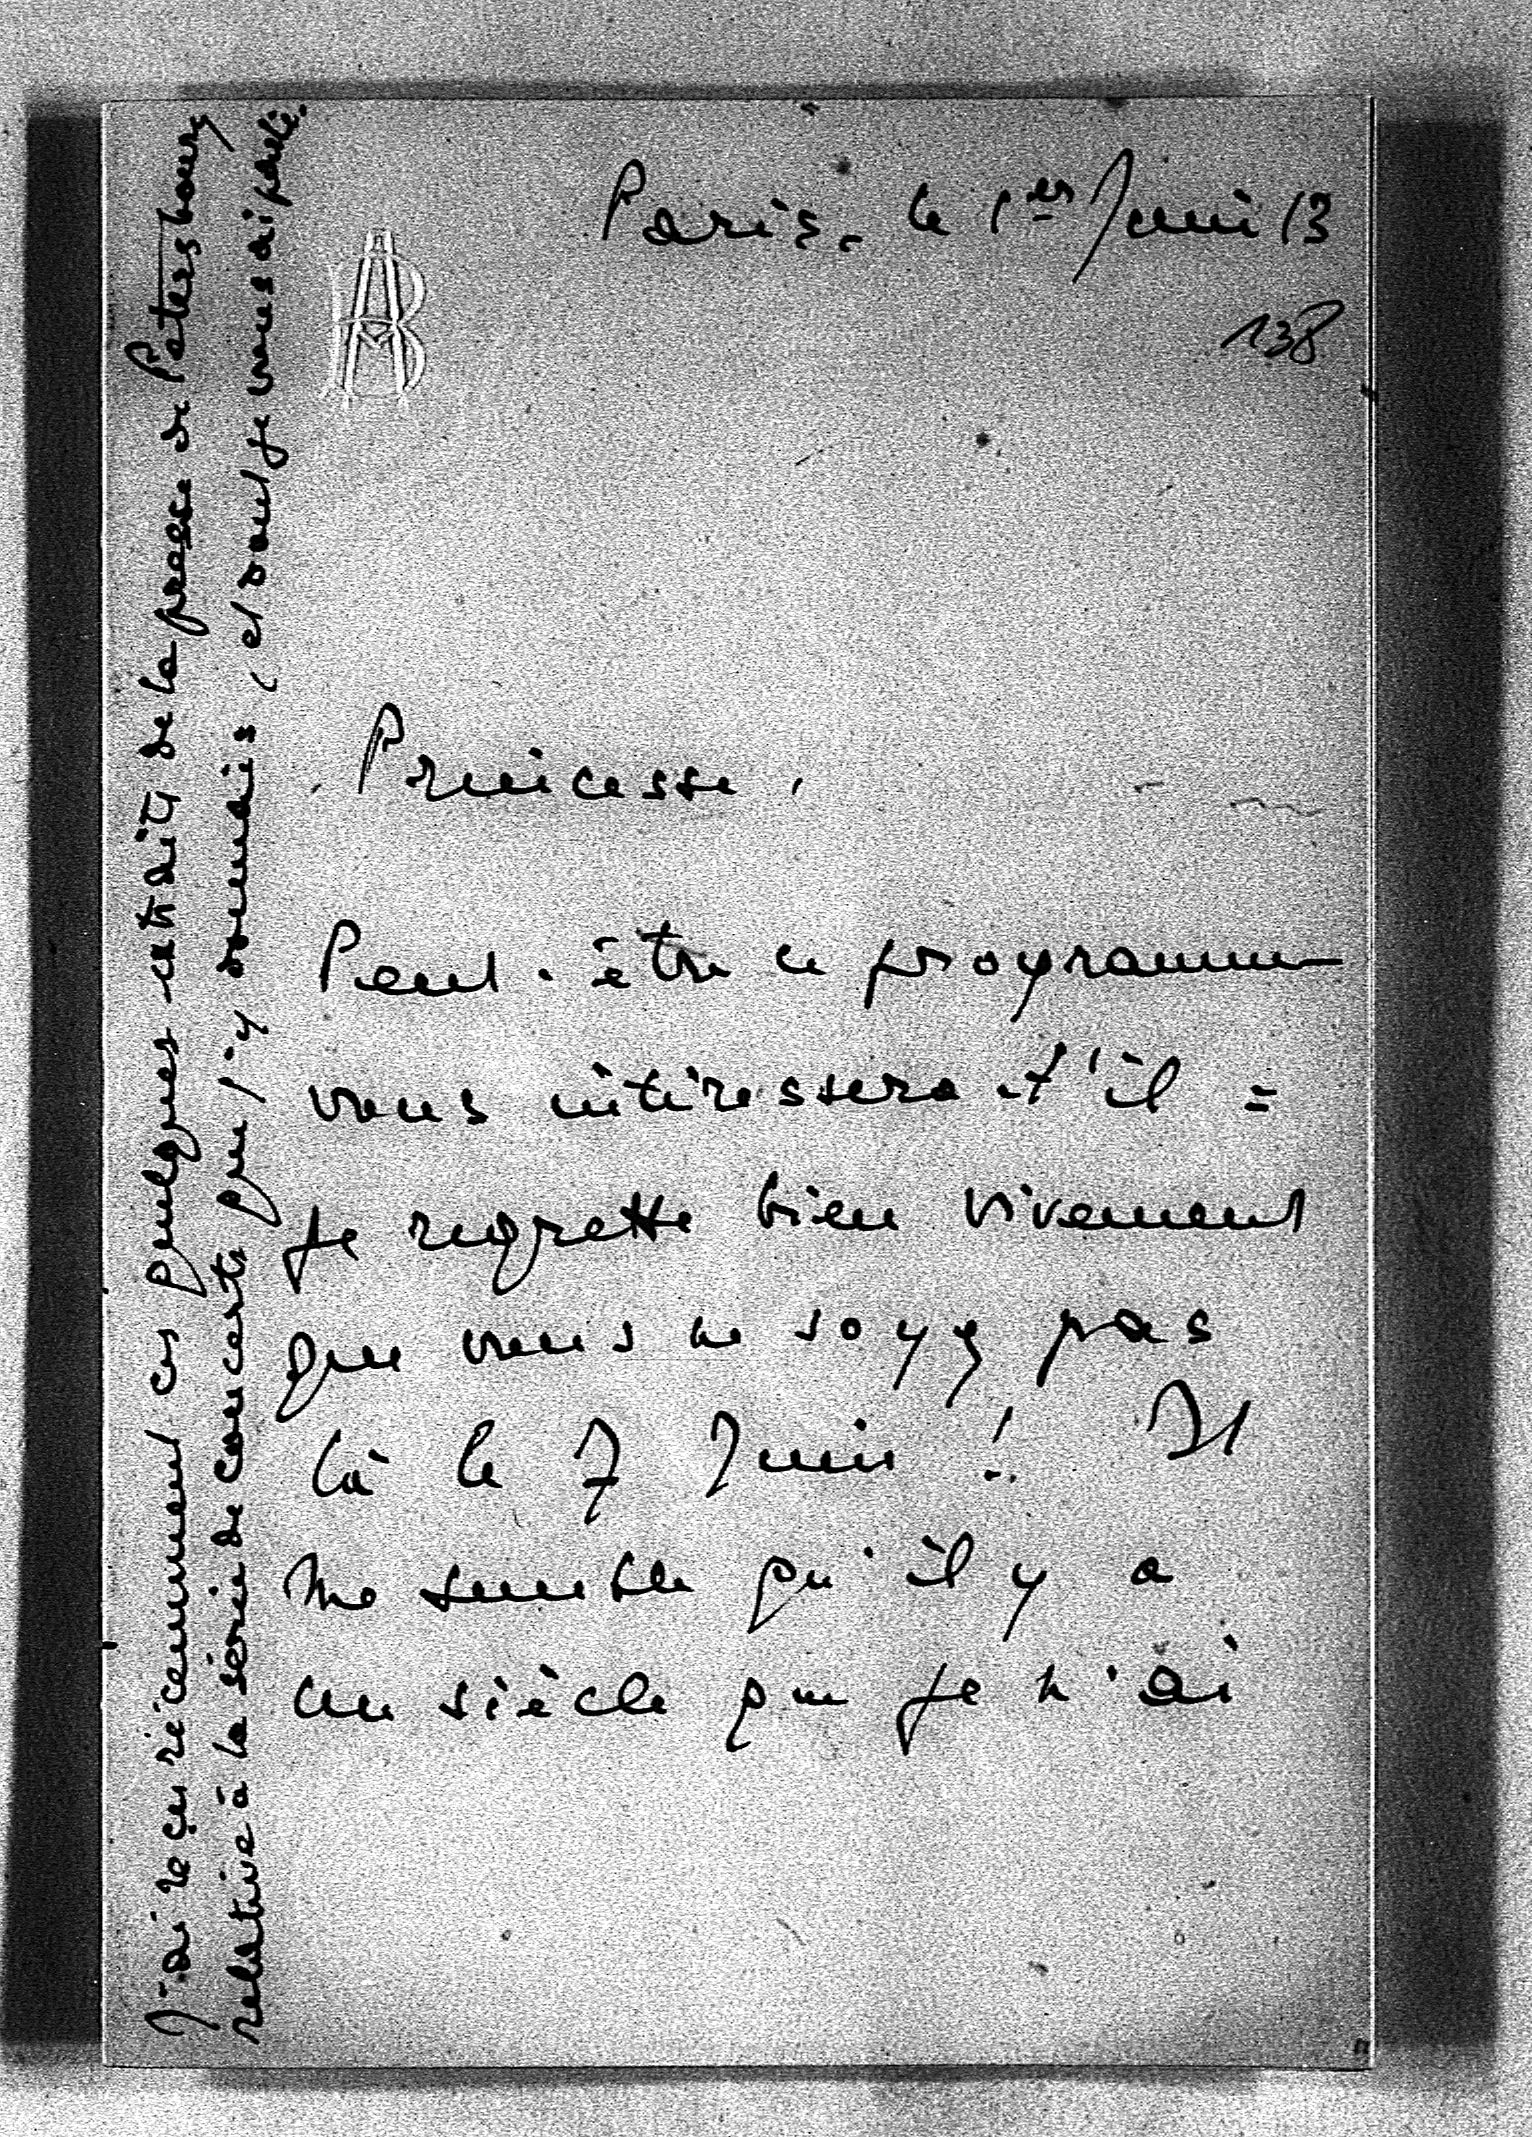 Paris, le 1er Juin 13
138
AB
Princesse,
Peut-être ce programme
vous intéressera-t'il =
je regrette bien vivement
que vous ne soyez pas
là le 7 Juin ! Il
me semble qu'il y a
un siècle que je n'ai
J'ai reçu récemment ces quelques extraits de la presse de Petersbourg
relative à la série de concerts que j'y donnais (et dont je vous ai parlé.